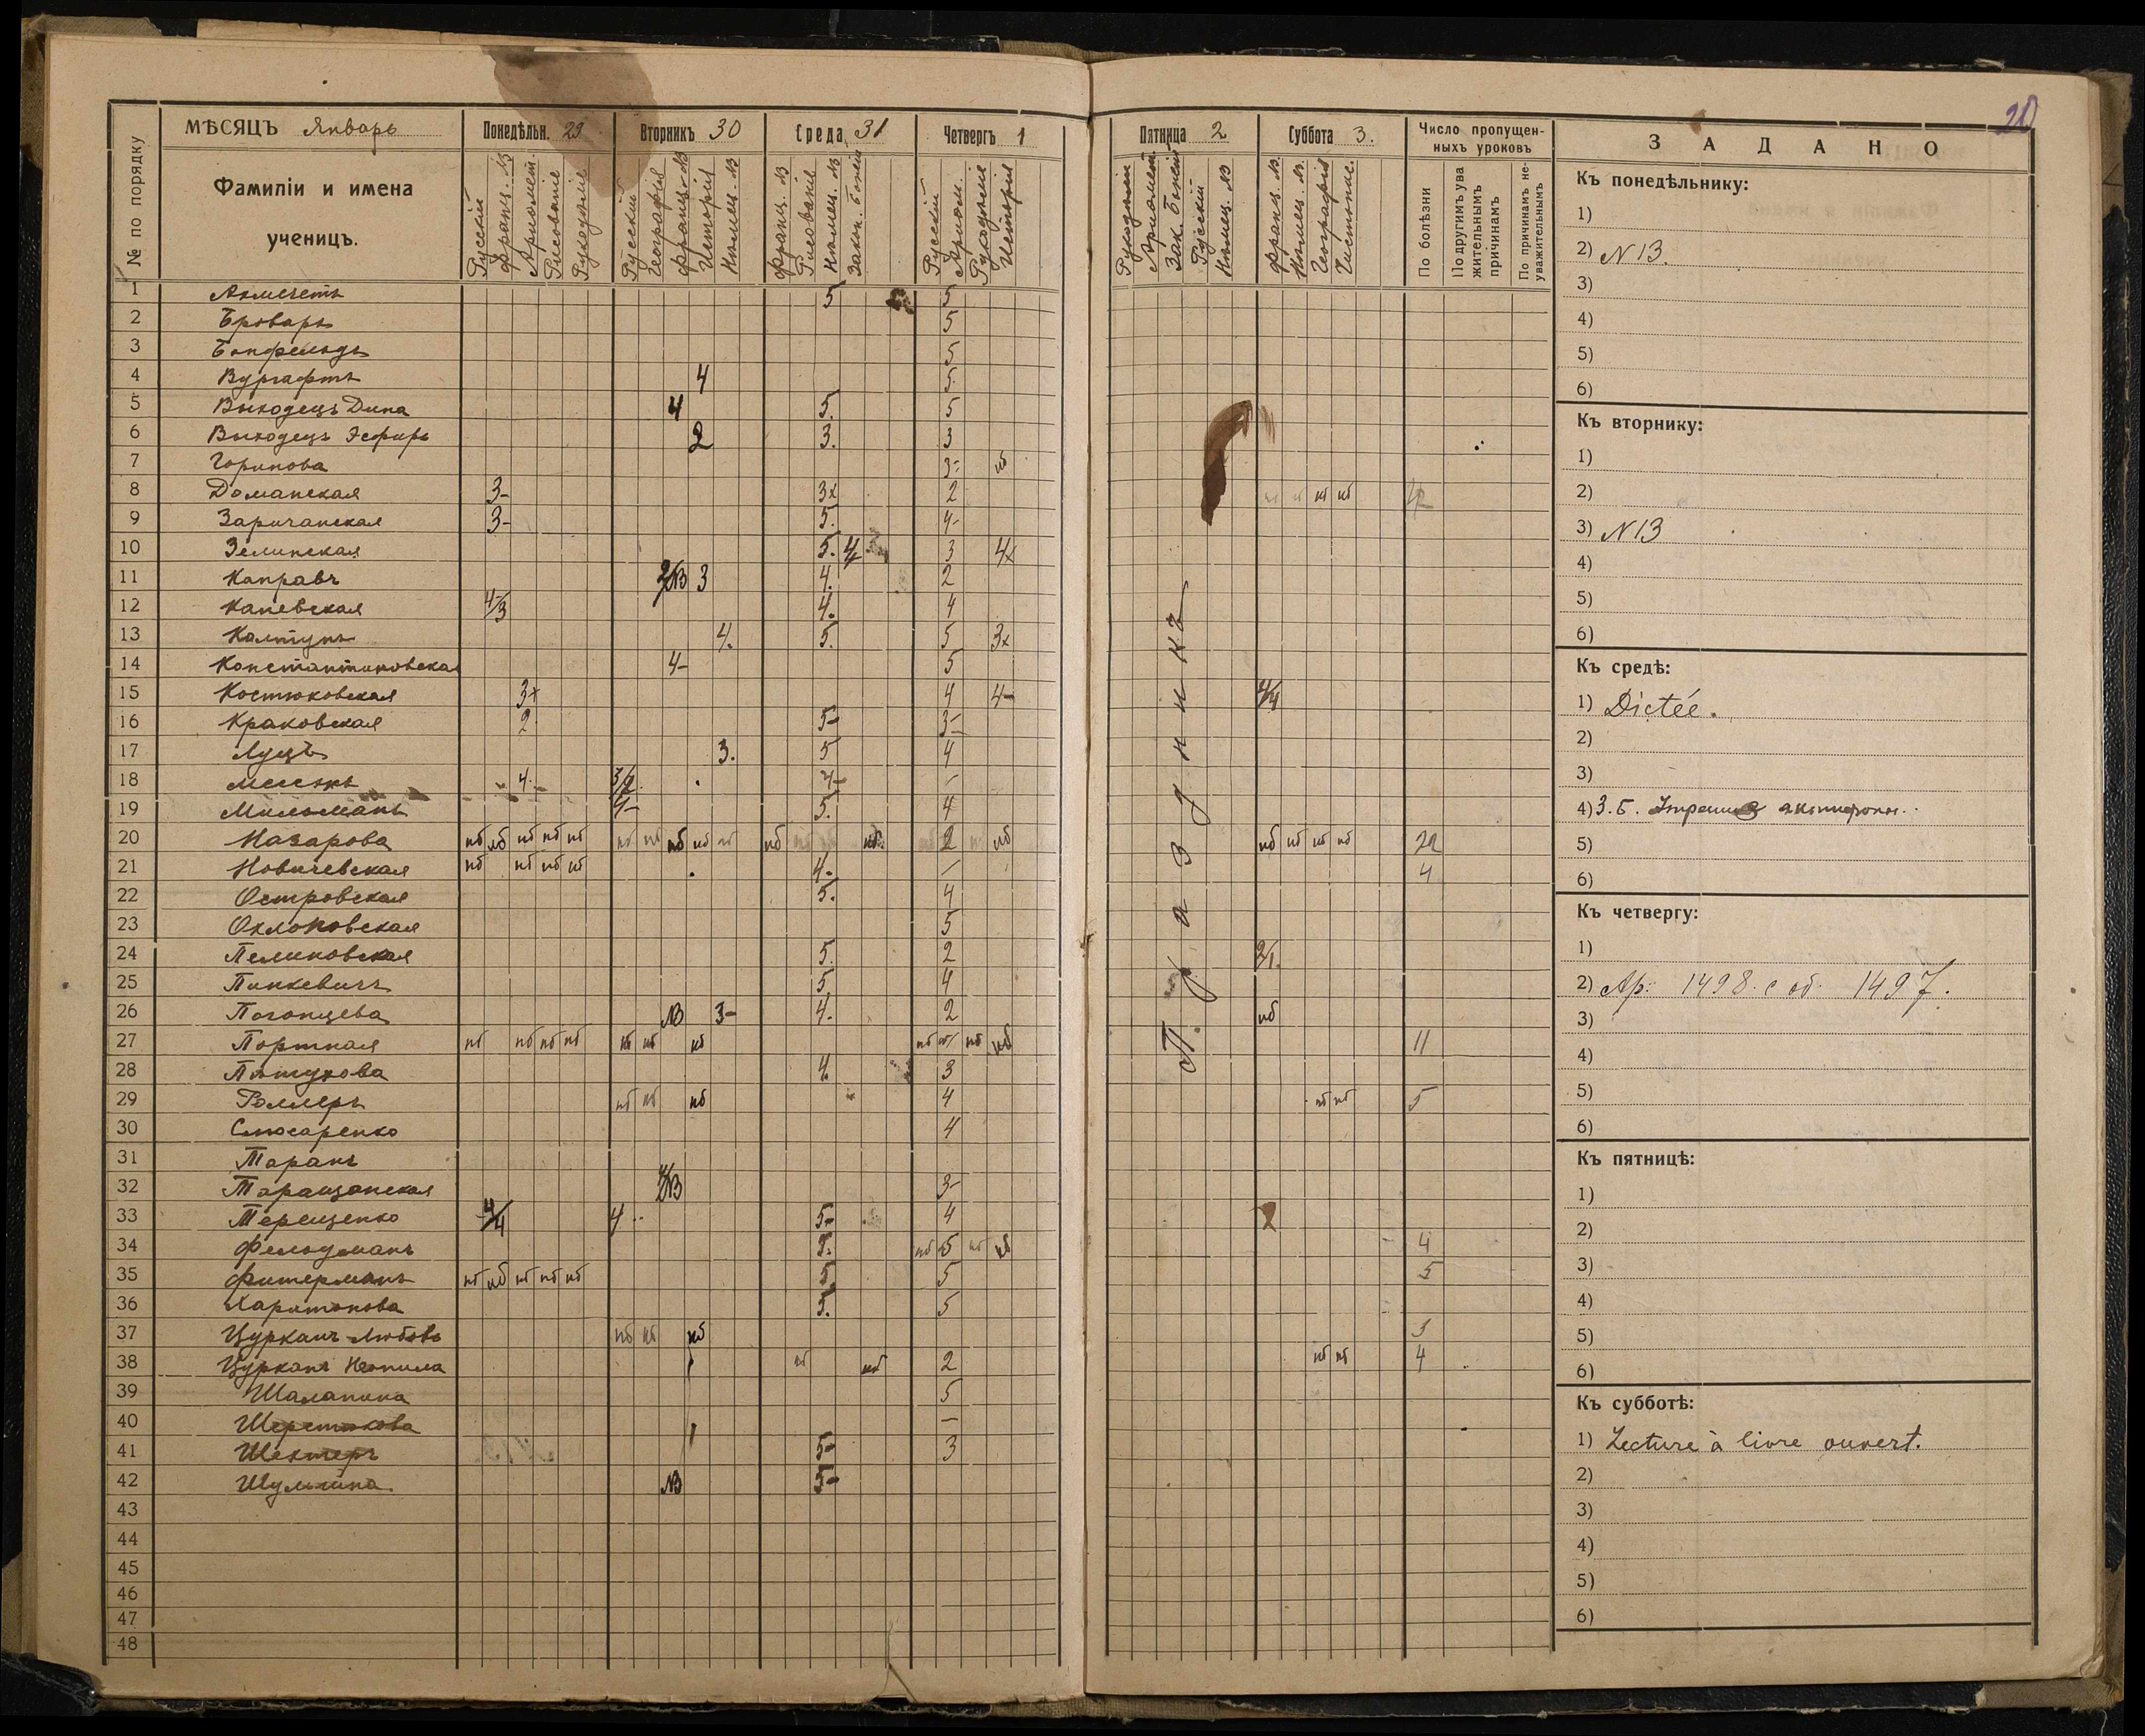 20
МѢСЯЦЪ Январь
Понедѣльн. 29
Вторникъ 30
Среда 31
Четвергъ 1
Пятница 2
Суббота 3.
Число пропущенныхъ уроковъ
ЗАДАНО
№ по порядку
Фамиліи и имена
ученицъ.
Русскій
Франц. №
Ариѳмет.
Рисованіе
Рукодѣліе
Русскій
Географія
Франц. №
Исторія
Нѣмец. №
Франц. №
Рисованіе
Нѣмец. №
Закон. Божій
Русскій
Ариѳм.
Рукодѣліе
Исторія
Рукодѣліе
Ариѳмет.
Зак. Божій
Русскій
Нѣмец. №
Франц. №
Нѣмец. №
Географія
Чистопис.
По болѣзни
По другимъ ува
жительнымъ
причинамъ
По причинамъ не-
уважительнымъ
1 5 5
2 Броварь 5
3 5
4 Вургафтъ 4 5
5 Выходецъ Дина 4 5. 5
6 Выходецъ Эсфирь 2 3. 3
7 Горинова 3- нб
8 Доманская 3- 3х 2 нб нб нб нб
9 Заричанская 3- 5. 4-
10 Зелинская 5. 4 3 4х
11 3 4. 2
12 Каневская 4/3 4. 4
13 Колтунъ 4. 5. 5 3х
14 Константиновская 4- 5
15 Костюковская 3+ 4 4- 4/4
16 Краковская 2 5- 3-
17 Луцъ 3. 5 4
18 4. 3/2 4-
19 Мильманъ 4- 5. 4
20 Назарова нб нб нб нб нб нб нб нб нб нб нб нб 2 нб нб нб нб нб 22
21 Новичевская нб нб нб нб 4. 4
22 Островская 5. 4
23 5
24 Пеликовская 5. 2 2/1.
25 Пинкевичъ 5 4
26 Погонцева № 3- 4. 2 нб
27 Портная нб нб нб нб нб нб нб нб нб нб нб 11
28 Пятухова 4. 3
29 Роллеръ нб нб нб 4 нб нб 5
30 Слюсаренко 4
31 Таранъ
32 Таращанская 3-
33 Терещенко 4/4 4 5- 4
34 Фельдманъ 5. нб 5 нб нб 4
35 Фитерманъ нб нб нб нб нб 5. 5 5
36 Харитонова 5. 5
37 Цурканъ Любовь нб нб нб 3
38 Цурканъ Неонила нб нб 2 нб нб 4
39 Шалапина 5
40 Шерстюкова -
41 Шехтеръ 5- 3
42 Шулькина № 5-
43
44
45
46
47
48
Праздникъ
Къ понедѣльнику:
1)
2) N 13.
3)
4)
5)
6)
Къ вторнику:
1)
2)
3) N 13
4)
5)
6)
Къ средѣ:
1) Dictée.
2)
3)
4) З. Б.
5)
6)
Къ четвергу:
1)
2) Ар: 1498. с об. 1497.
3)
4)
5)
6)
Къ пятницѣ:
1)
2)
3)
4)
5)
6)
Къ субботѣ:
1) Lecture à livre ouvert.
2)
3)
4)
5)
6)